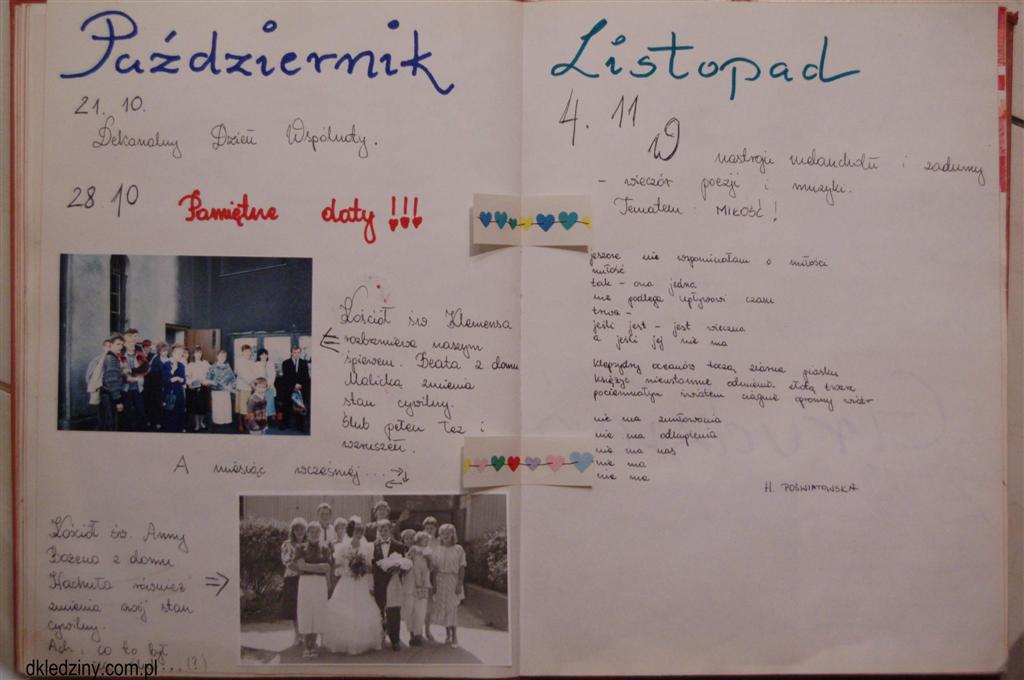 Październik
21. 10.
Dekanalny Dzień Wspólnoty.
28.10 Pamiętne daty !!!
Kościół św. Klemensa
rozbrzmiewa naszym
śpiewem. Beata z domu
Malicka zmienia
stan cywilny.
Ślub pełen łez i
wzruszeń.
A miesiąc wcześniej...
Kościół św. Anny
Bożena z domu
Hachuła również
zmienia swój stan
cywilny.
Ach, co to był
...(?)
Listopad
4. 11 W nastroju melancholii i zadumy
- wieczór poezji i muzyki.
Tematem: MIŁOŚĆ!
jeszcze nie wspominałam o miłości
miłość
tak - ona jedna
nie podlega wpływowi czasu
trwa -
jeśli jest - jest wieczna
a jeśli jej nie ma
klepsydry oceanów toczą ziarna piasku
księżyc nieustannie odmienia złotą twarz
pociemniałym światem ciągnie ogromny wiatr
nie ma zmiłowania
nie ma odkupienia
nie ma nas
nie ma
nie ma
H. POŚWIATOWSKA
dkledziny.com.pl